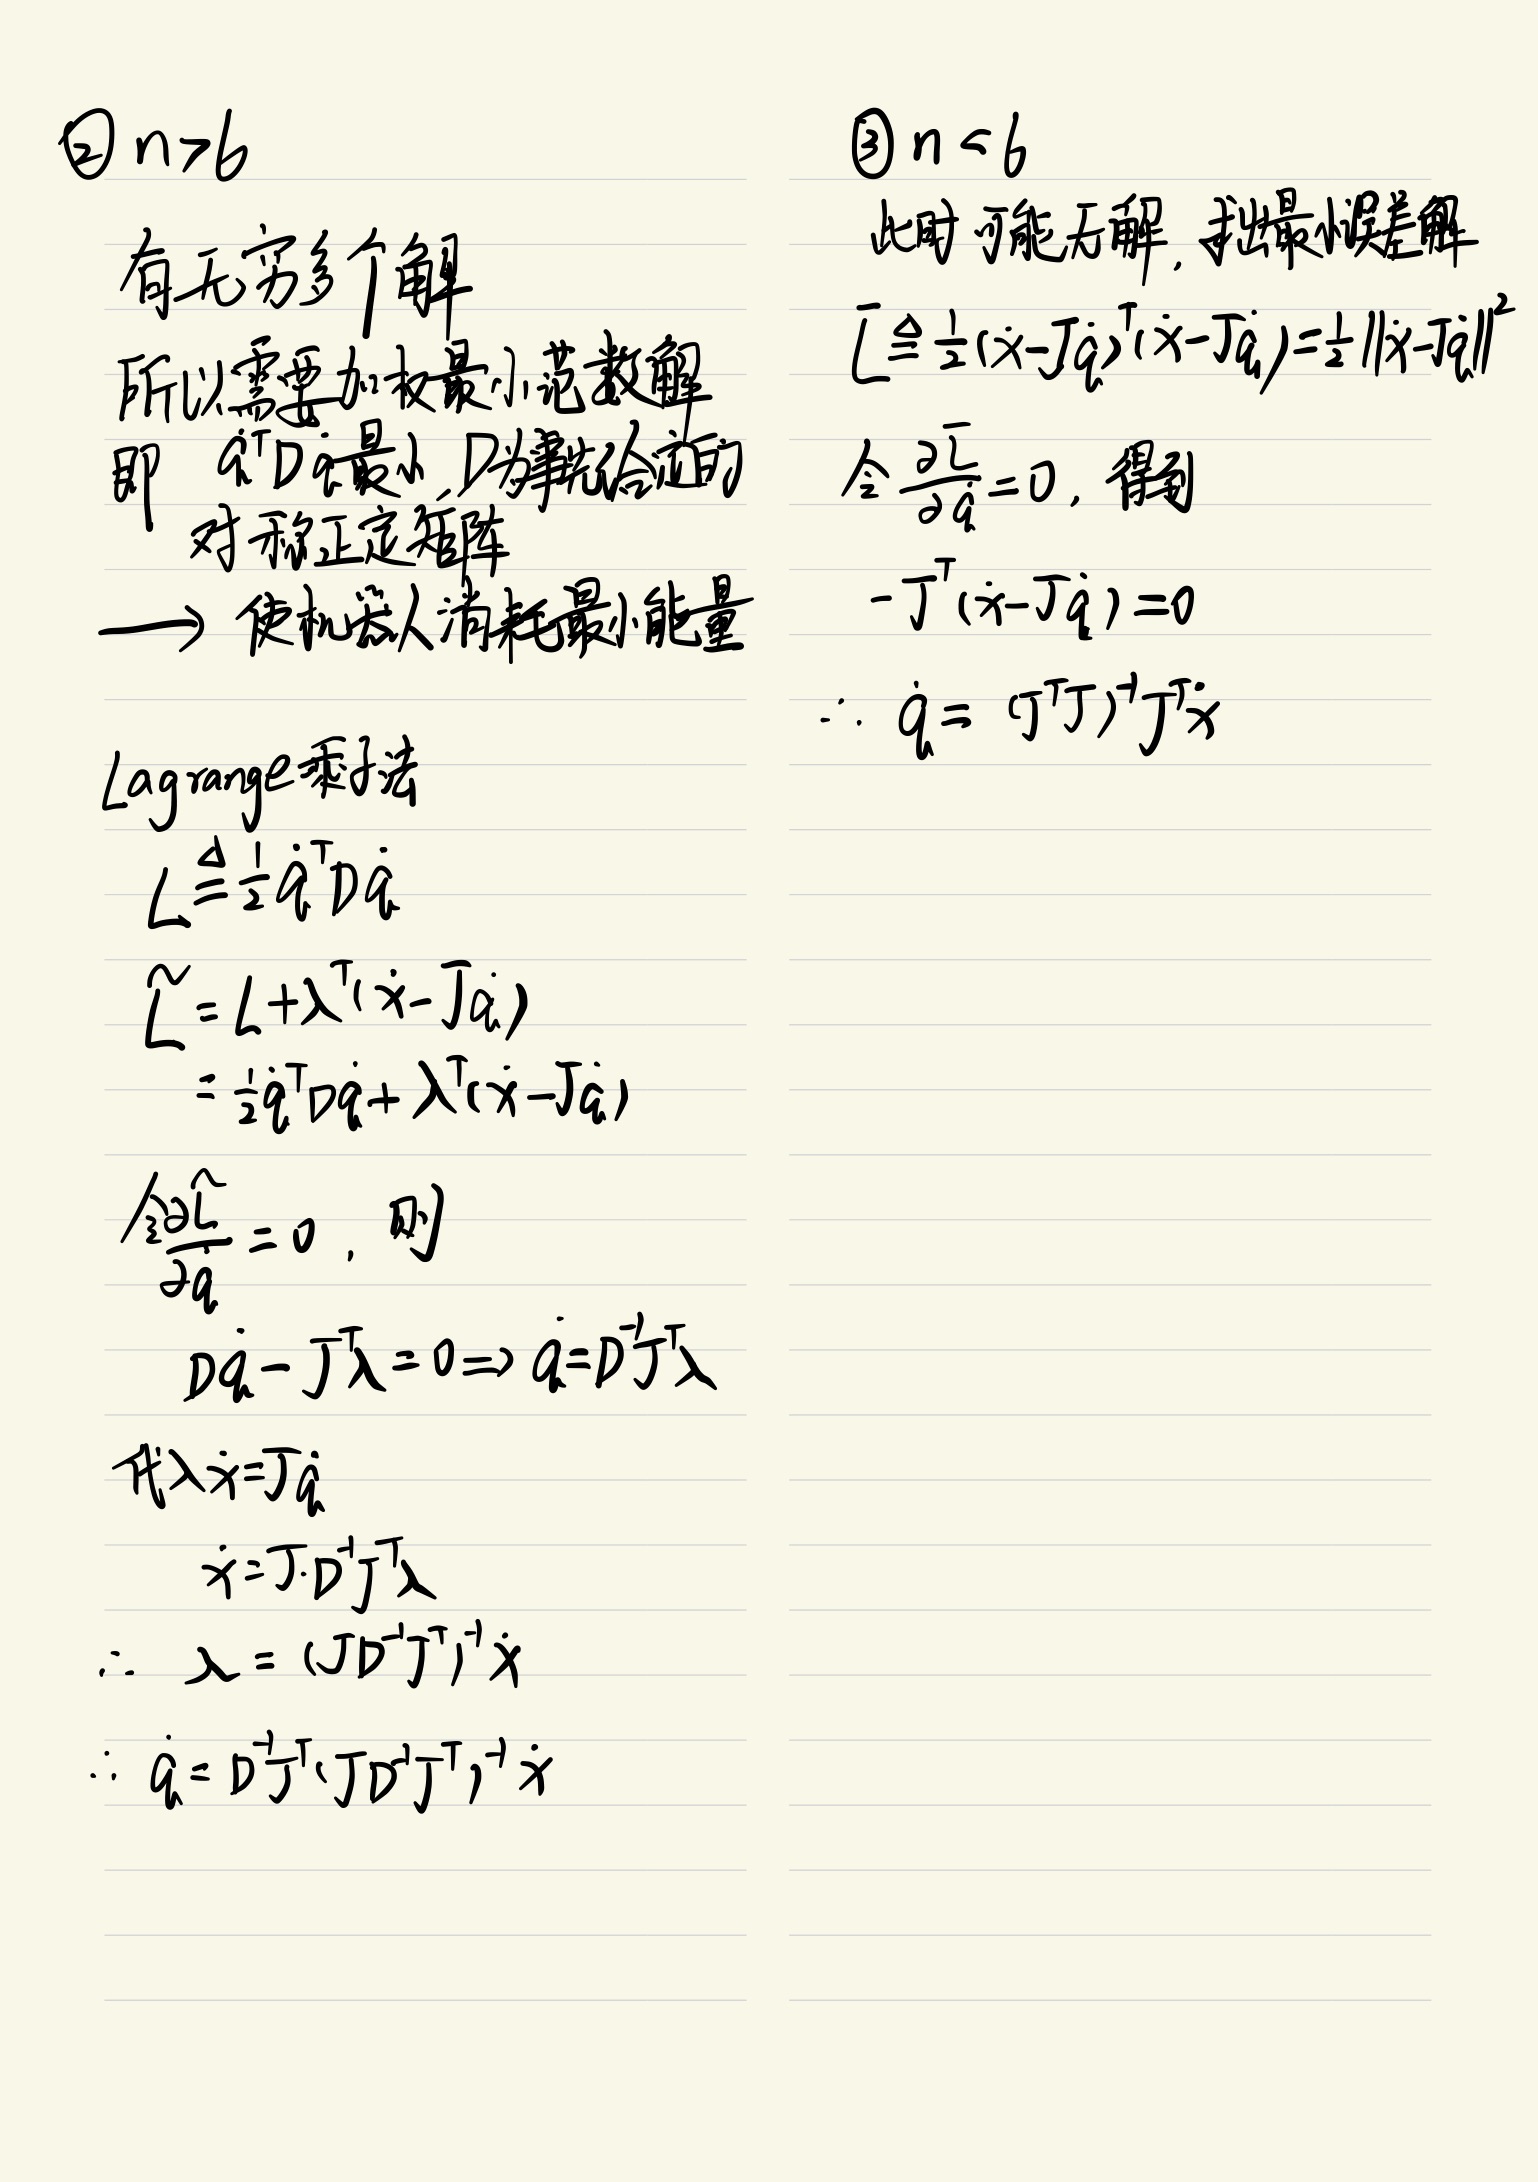 ② n>6
有无穷多个解
所以需要加权最小范数解
即 q̇ᵀDq̇最小, D为事先给定的
对称正定矩阵
→ 使机器人消耗最小能量
Lagrange乘子法
L ≜ ½ q̇ᵀDq̇
L̃ = L + λᵀ(ẋ - Jq̇)
= ½ q̇ᵀDq̇ + λᵀ(ẋ - Jq̇)
令 ∂L̃/∂q̇ = 0, 则
Dq̇ - Jᵀλ = 0 => q̇ = D⁻¹Jᵀλ
代入 ẋ = Jq̇
ẋ = J·D⁻¹Jᵀλ
∴ λ = (JD⁻¹Jᵀ)⁻¹ẋ
∴ q̇ = D⁻¹Jᵀ(JD⁻¹Jᵀ)⁻¹ẋ
③ n<6
此时可能无解, 求出最小误差解
L̄ ≜ ½(ẋ-Jq̇)ᵀ(ẋ-Jq̇) = ½‖ẋ-Jq̇‖²
令 ∂L̄/∂q̇ = 0, 得到
-Jᵀ(ẋ-Jq̇) = 0
∴ q̇ = (JᵀJ)⁻¹Jᵀẋ